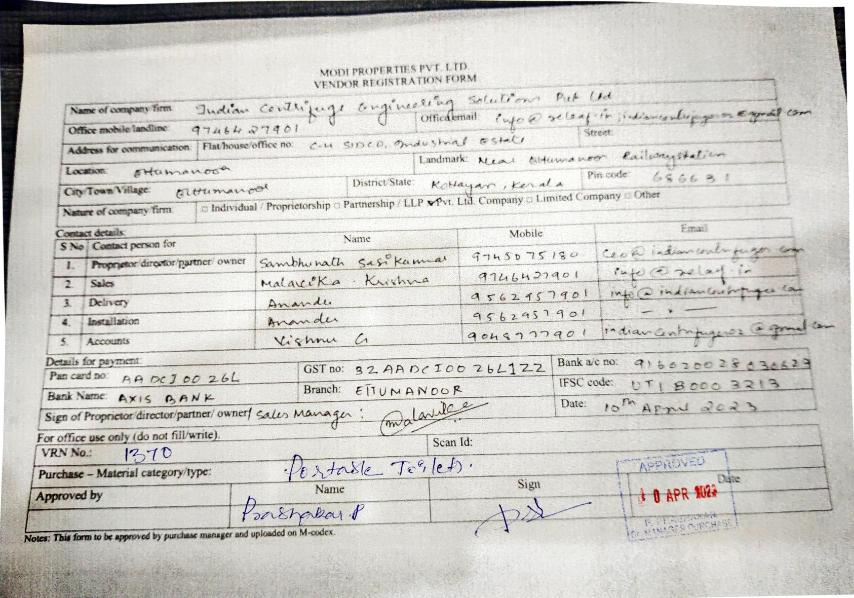 MODI PROPERTIES PVT. LTD.
VENDOR REGISTRATION FORM
Name of company/firm: Indian Centrifuge Engineering Solutions Pvt Ltd
Office mobile/landline: 9746427901 Office email: info@releaf.in, indiancentrifuge02@gmail.com
Address for communication: Flat/house/office no: C-4 SIDCO, Industrial Estate Street:
Location: Ettumanoor Landmark: Near Ettumanoor Railway station
City/Town/Village: Ettumanoor District/State: Kottayam, Kerala Pin code: 686631
Nature of company/firm: □ Individual / Proprietorship □ Partnership / LLP ✓Pvt. Ltd. Company □ Limited Company □ Other
Contact details:
S No Contact person for Name Mobile Email
1. Proprietor/director/partner/ owner Sambhunath Sasikumar 9745075180 ceo@indiancentrifuge.com
2. Sales Malavika Krishna 9746427901 info@releaf.in
3. Delivery Anandu 9562957901 info@indiancentrifuge.com
4. Installation Anandu 9562957901 - " -
5. Accounts Vishnu G 9048777901 indiancentrifuge02@gmail.com
Details for payment:
Pan card no: AADCI0026L GST no: 32AADCI0026L1ZZ Bank a/c no:
Bank Name: AXIS BANK Branch: ETTUMANOOR IFSC code: UTIB0003213
Sign of Proprietor/director/partner/ owner/ Sales Manager: Malavika Date: 10th April 2023
For office use only (do not fill/write).
VRN No.: 1370 Scan Id:
Purchase – Material category/type: Portable Toilets.
Approved by Name Sign Date
Prabhakar.P
APPROVED
10 APR 2023
Sr. MANAGER PURCHASE
Notes: This form to be approved by purchase manager and uploaded on M-codex.